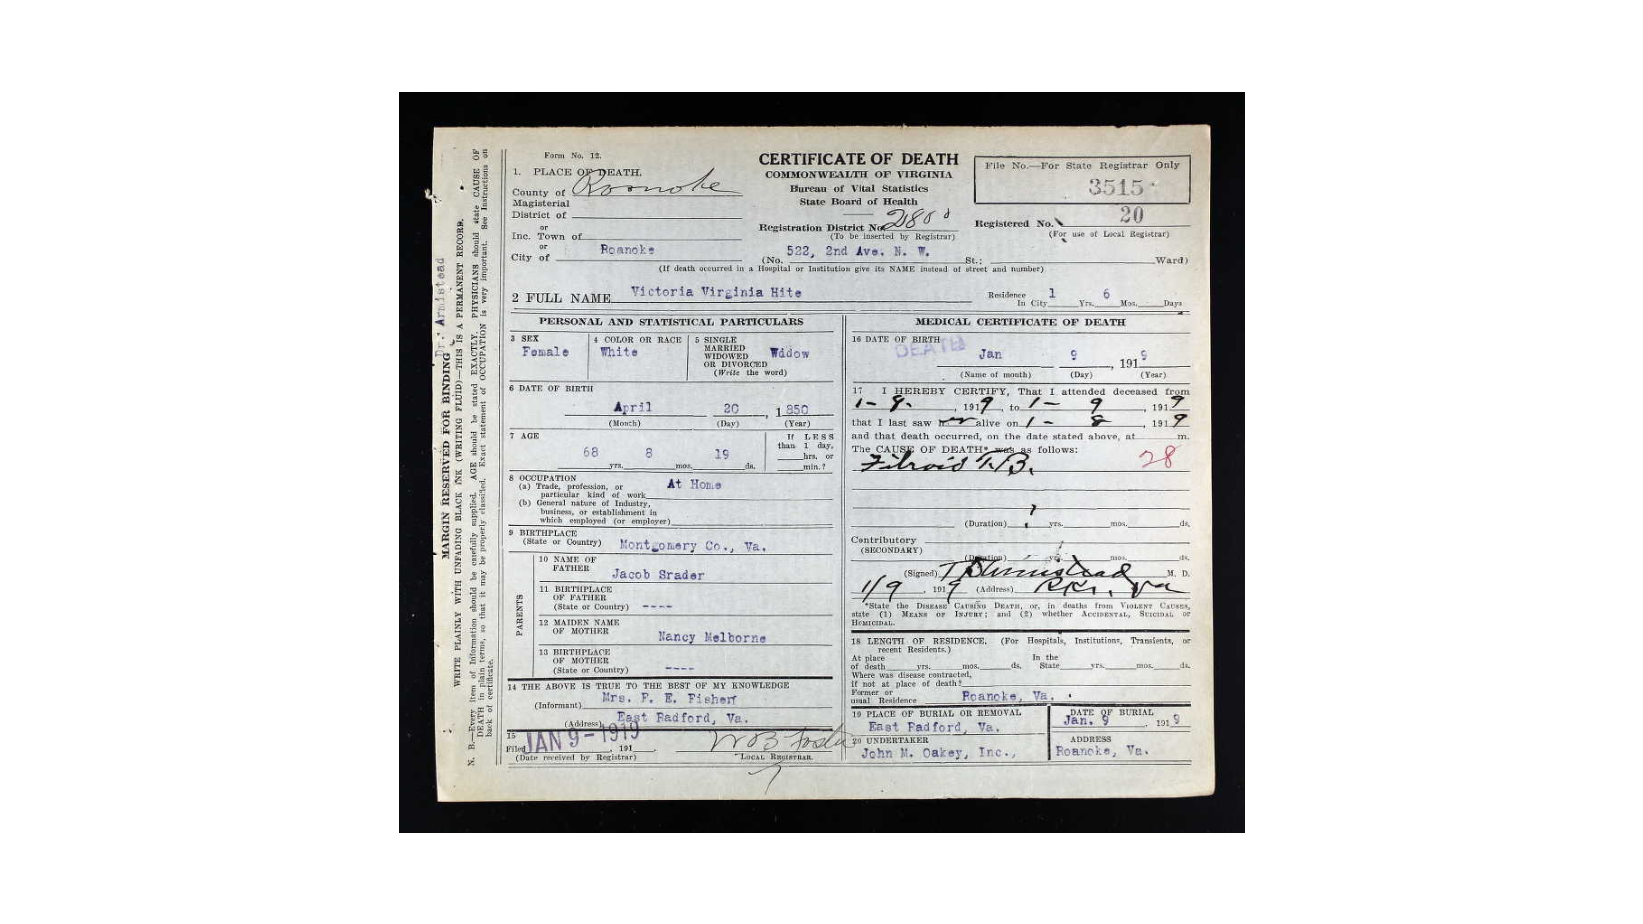 Form No. 12.
1. PLACE OF DEATH.
County of Roanoke
Magisterial
District of
or
Inc. Town of
or
City of Roanoke
CERTIFICATE OF DEATH
COMMONWEALTH OF VIRGINIA
Bureau of Vital Statistics
State Board of Health
Registration District No.
(To be inserted by Registrar)
File No.—For State Registrar Only
3515
Registered No. 20
(For use of Local Registrar)
(No. 522, 2nd Ave. N. W. St.; Ward)
(If death occurred in a Hospital or Institution give its NAME instead of street and number)
2 FULL NAME Victoria Virginia Hite
Residence In City 1 Yrs. 6 Mos. Days
PERSONAL AND STATISTICAL PARTICULARS
3 SEX
Female
4 COLOR OR RACE
White
5 SINGLE
MARRIED
WIDOWED
OR DIVORCED
(Write the word)
Wddow
6 DATE OF BIRTH
April 20, 1850
(Month) (Day) (Year)
7 AGE
68 yrs. 8 mos. 19 ds.
If LESS
than 1 day,
hrs. or
min.?
8 OCCUPATION
(a) Trade, profession, or
particular kind of work At Home
(b) General nature of Industry,
business, or establishment in
which employed (or employer)
9 BIRTHPLACE
(State or Country) Montgomery Co., Va.
PARENTS
10 NAME OF
FATHER Jacob Srader
11 BIRTHPLACE
OF FATHER
(State or Country) ----
12 MAIDEN NAME
OF MOTHER Nancy Melborne
13 BIRTHPLACE
OF MOTHER
(State or Country) ----
14 THE ABOVE IS TRUE TO THE BEST OF MY KNOWLEDGE
(Informant) Mrs. F. E. Fisher
(Address) East Radford, Va.
15
Filed JAN 9-1919, 191
(Date received by Registrar)
W B Foster
LOCAL REGISTRAR.
MEDICAL CERTIFICATE OF DEATH
16 DATE OF BIRTH
DEATH
Jan 9, 1919
(Name of month) (Day) (Year)
17 I HEREBY CERTIFY, That I attended deceased from
1-8-, 1919, to 1-9, 1919
that I last saw her alive on 1-8, 1919
and that death occurred, on the date stated above, at m.
The CAUSE OF DEATH* was as follows:
Fibroid T.B.
28
(Duration) ? yrs. mos. ds.
Contributory
(SECONDARY)
(Duration) yrs. mos. ds.
(Signed) Armistead M. D.
1/9, 1919 (Address) Rke, Va
*State the DISEASE CAUSING DEATH, or, in deaths from VIOLENT CAUSES,
state (1) MEANS OF INJURY; and (2) whether ACCIDENTAL, SUICIDAL or
HOMICIDAL.
18 LENGTH OF RESIDENCE. (For Hospitals, Institutions, Transients, or
recent Residents.)
At place
of death yrs. mos. ds.
In the
State yrs. mos. ds.
Where was disease contracted,
If not at place of death?
Former or
usual Residence Roanoke, Va.
19 PLACE OF BURIAL OR REMOVAL
East Radford, Va.
DATE OF BURIAL
Jan. 9 1919
20 UNDERTAKER
John M. Oakey, Inc.,
ADDRESS
Roanoke, Va.
Dr. Armistead
MARGIN RESERVED FOR BINDING
WRITE PLAINLY WITH UNFADING BLACK INK (WRITING FLUID)—THIS IS A PERMANENT RECORD.
N. B.—Every item of Information should be carefully supplied. AGE should be stated EXACTLY. PHYSICIANS should state CAUSE OF
DEATH in plain terms, so that it may be properly classified. Exact statement of OCCUPATION is very important. See Instructions on
back of certificate.